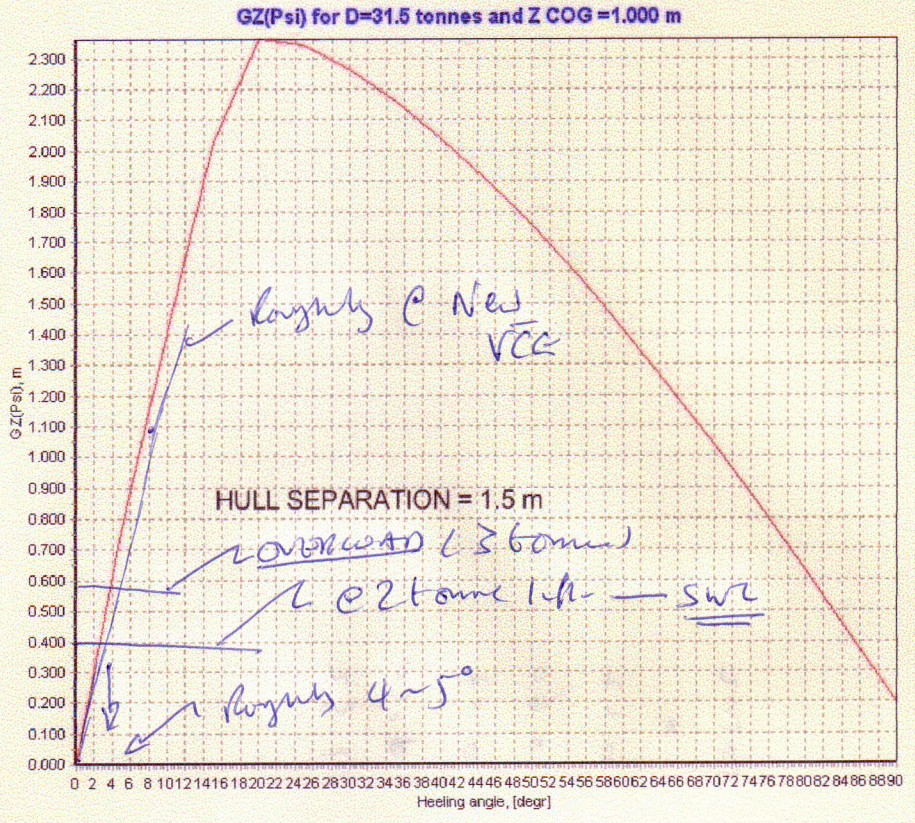 GZ(Psi) for D=31.5 tonnes and Z COG =1.000 m
2.300
2.200
2.100
2.000
1.900
1.800
1.700
1.600
1.500
1.400
1.300
1.200
1.100
1.000
0.900
0.800
0.700
0.600
0.500
0.400
0.300
0.200
0.100
0.000
GZ(Psi), m
Roughly @ New
VCG
HULL SEPARATION = 1.5 m
OVERLOAD (3 tonnes)
@ 2 tonne lift - SWL
Roughly 4~5°
0 2 4 6 8 10 12 14 16 18 20 22 24 26 28 30 32 34 36 38 40 42 44 46 48 50 52 54 56 58 60 62 64 66 68 70 72 74 76 78 80 82 84 86 88 90
Heeling angle, [degr]